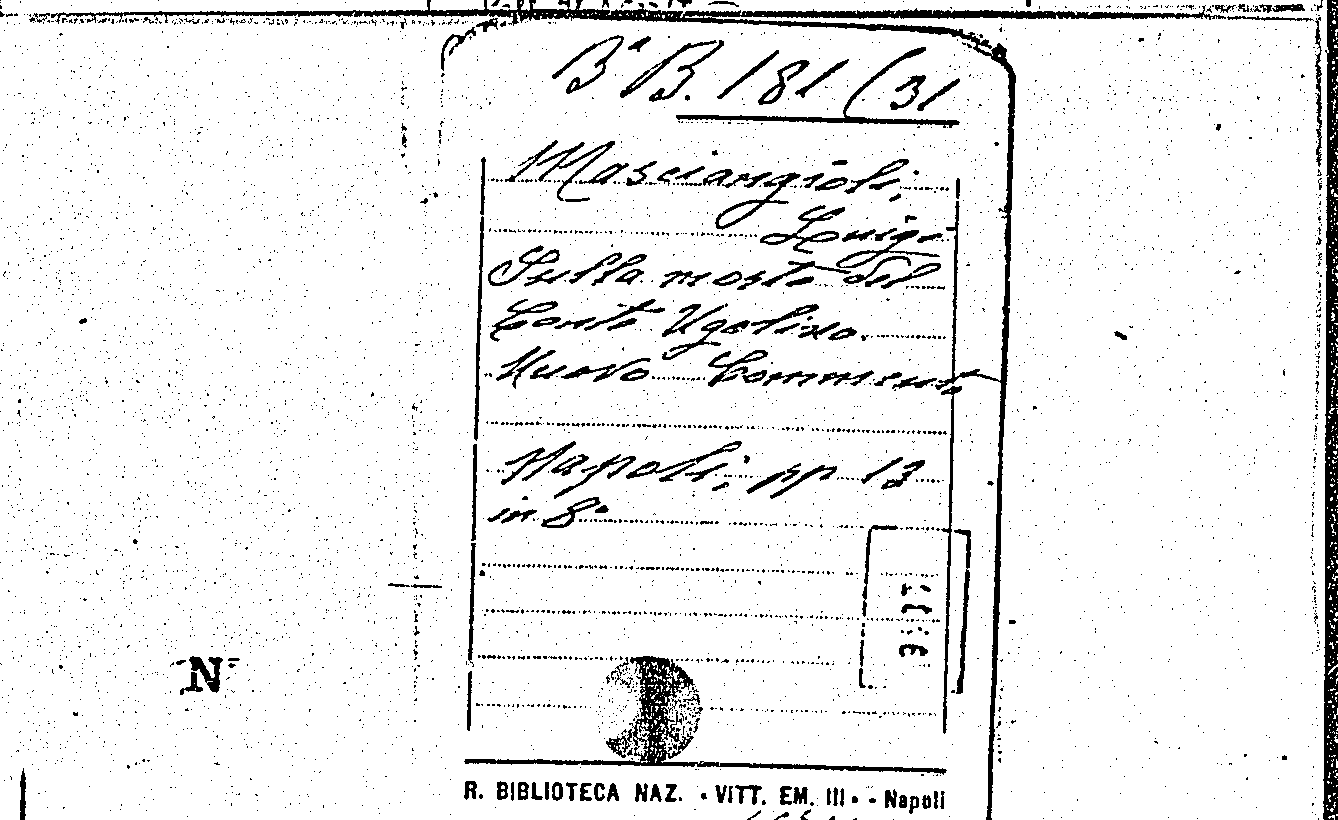 Bª B. 181 (31
Masciangioli,
Luigi
Sulla morte del
Conte Ugolino.
Nuovo Commento
Napoli; pp 13
in 8º
N
R. BIBLIOTECA NAZ. - VITT. EM. III - - Napoli